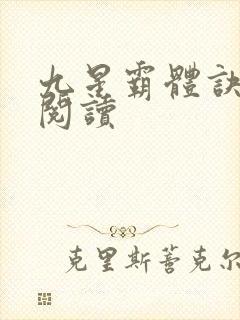 九星霸體訣
閱讀
克里斯蒼克尔